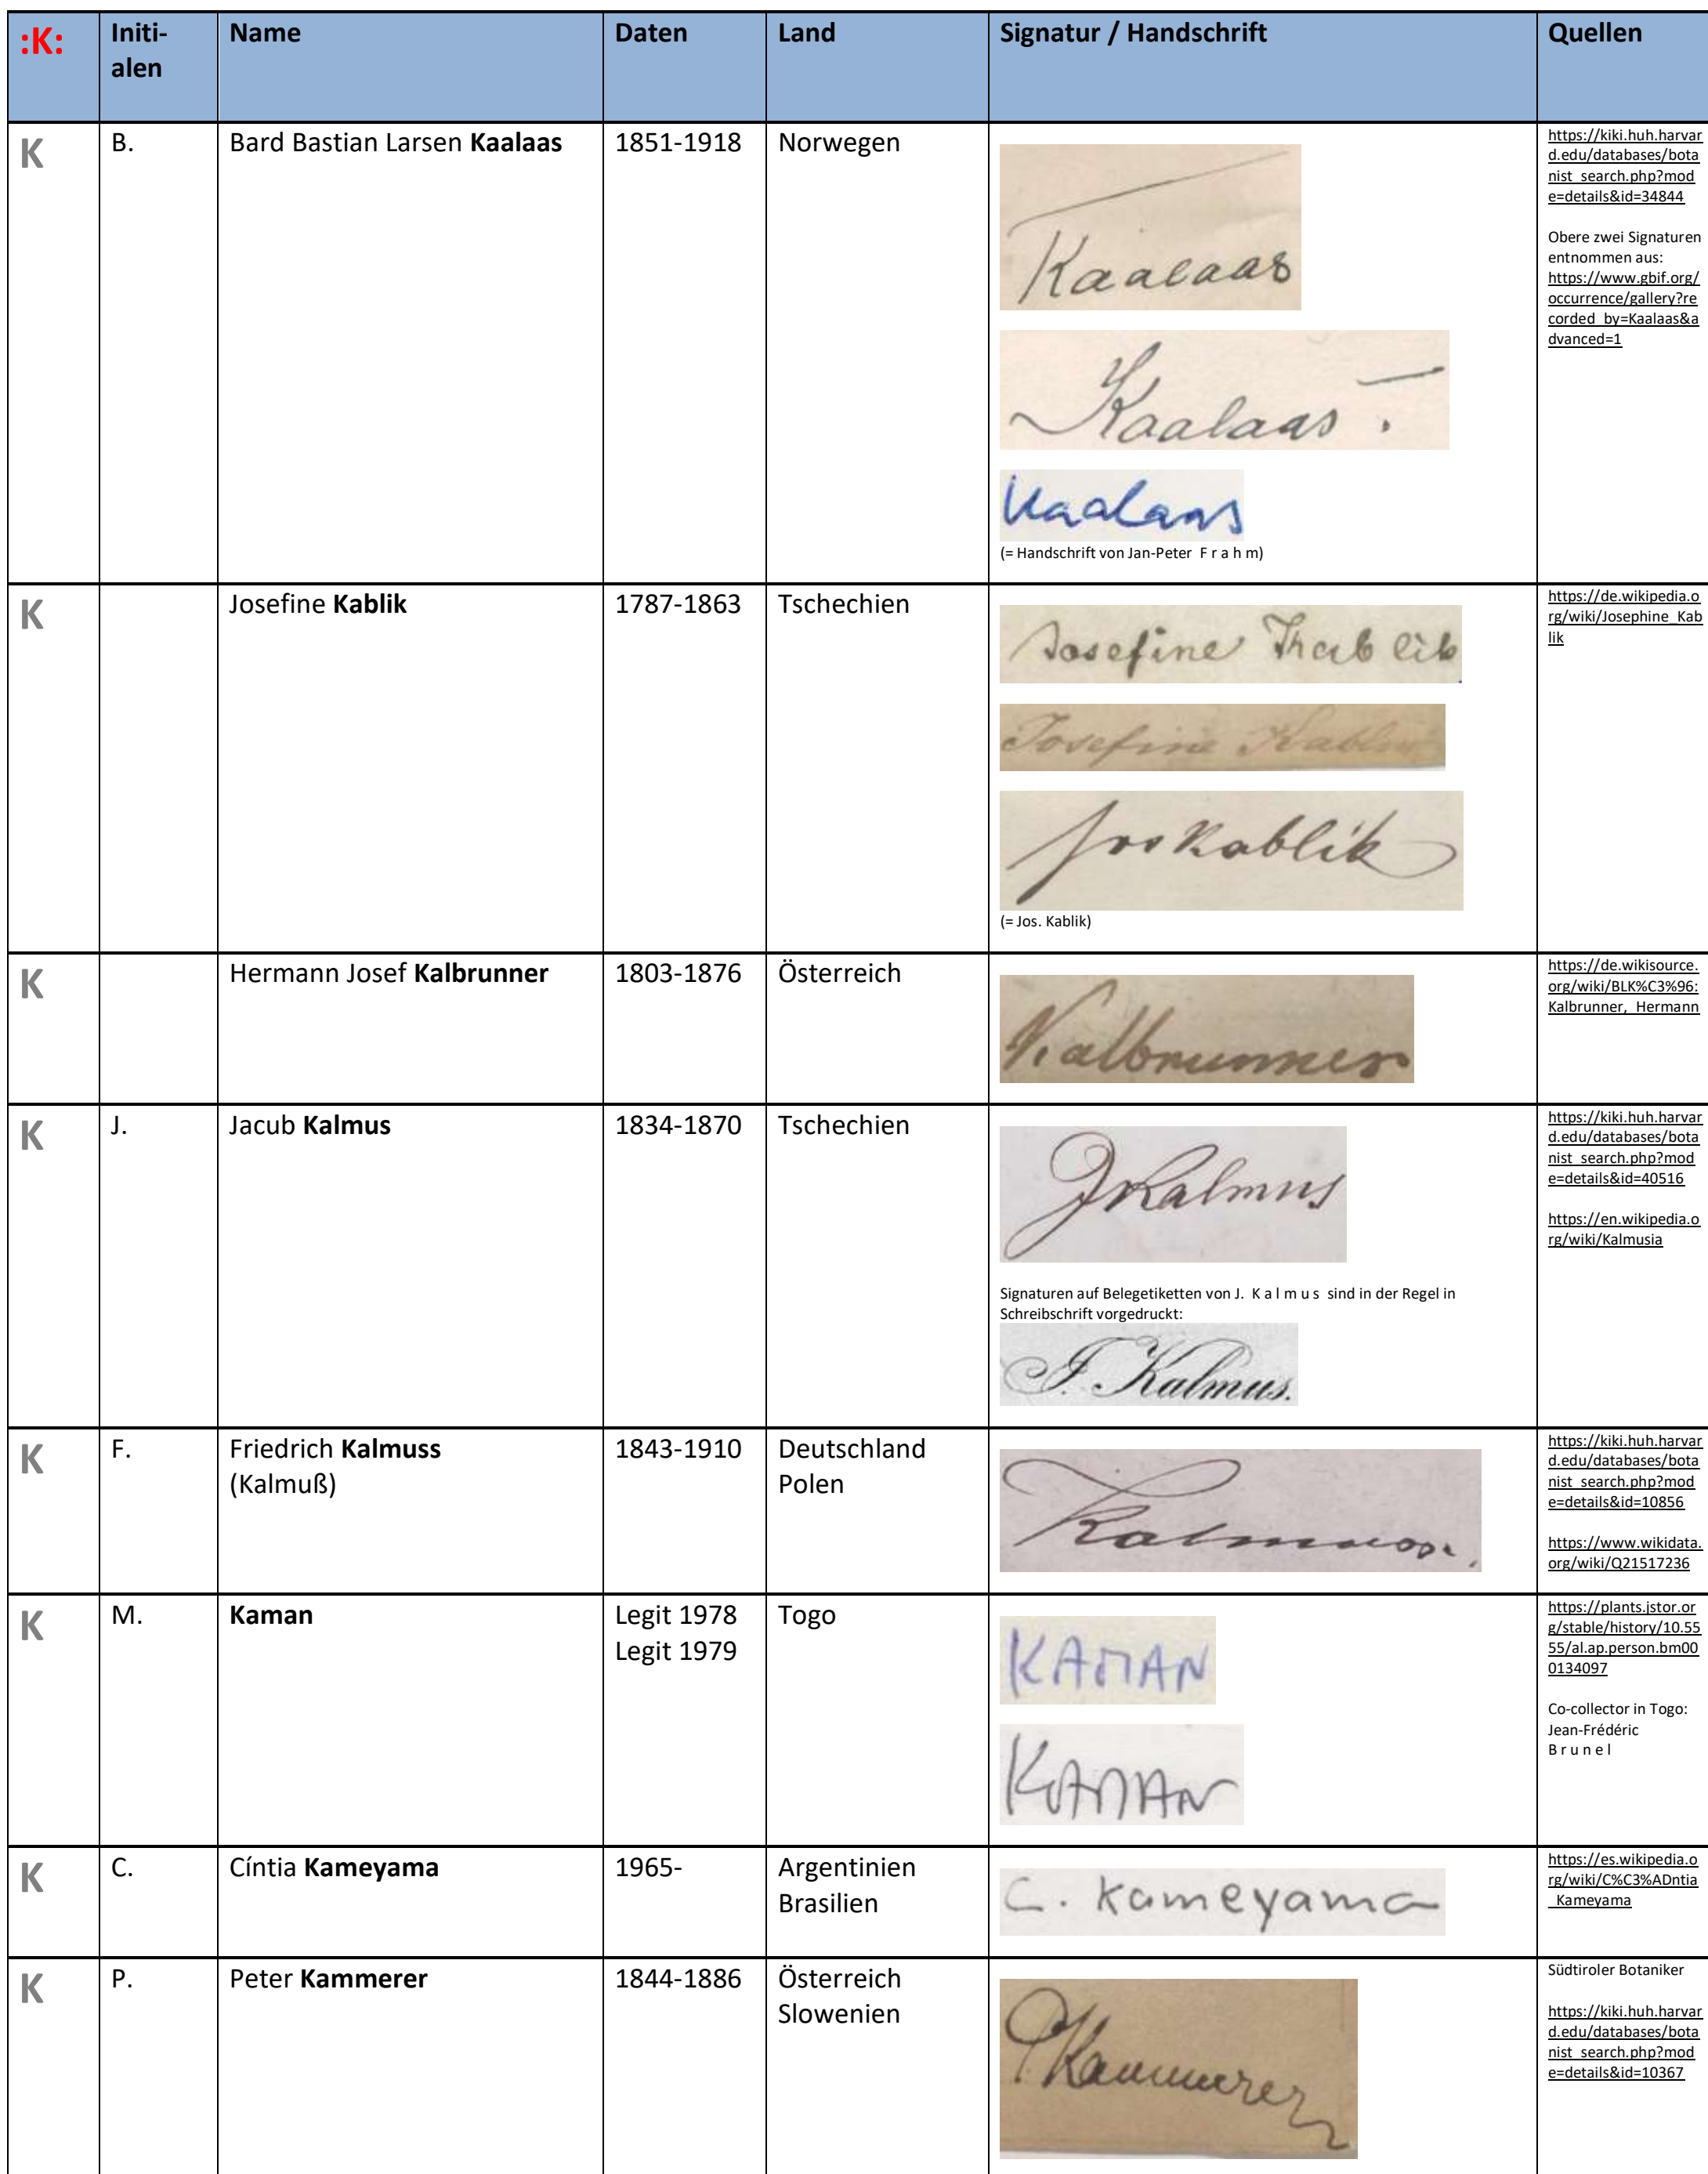 :K:
Initi-
alen
Name
Daten
Land
Signatur / Handschrift
Quellen
K
B.
Bard Bastian Larsen Kaalaas
1851-1918
Norwegen
Kaalaas
Kaalaas.
Kaalaas
(= Handschrift von Jan-Peter F r a h m)
https://kiki.huh.harvar
d.edu/databases/bota
nist_search.php?mod
e=details&id=34844
Obere zwei Signaturen
entnommen aus:
https://www.gbif.org/
occurrence/gallery?re
corded_by=Kaalaas&a
dvanced=1
K
Josefine Kablik
1787-1863
Tschechien
Josefine Kablik
Josefine Kablik
Jos Kablik
(= Jos. Kablik)
https://de.wikipedia.o
rg/wiki/Josephine_Kab
lik
K
Hermann Josef Kalbrunner
1803-1876
Österreich
Kalbrunner
https://de.wikisource.
org/wiki/BLK%C3%96:
Kalbrunner,_Hermann
K
J.
Jacub Kalmus
1834-1870
Tschechien
JKalmus
Signaturen auf Belegetiketten von J. K a l m u s sind in der Regel in
Schreibschrift vorgedruckt:
J. Kalmus.
https://kiki.huh.harvar
d.edu/databases/bota
nist_search.php?mod
e=details&id=40516
https://en.wikipedia.o
rg/wiki/Kalmusia
K
F.
Friedrich Kalmuss
(Kalmuß)
1843-1910
Deutschland
Polen
Kalmuss.
https://kiki.huh.harvar
d.edu/databases/bota
nist_search.php?mod
e=details&id=10856
https://www.wikidata.
org/wiki/Q21517236
K
M.
Kaman
Legit 1978
Legit 1979
Togo
KAMAN
KAMAN
https://plants.jstor.or
g/stable/history/10.55
55/al.ap.person.bm00
0134097
Co-collector in Togo:
Jean-Frédéric
B r u n e l
K
C.
Cíntia Kameyama
1965-
Argentinien
Brasilien
C. Kameyama
https://es.wikipedia.o
rg/wiki/C%C3%ADntia
_Kameyama
K
P.
Peter Kammerer
1844-1886
Österreich
Slowenien
PKammerer
Südtiroler Botaniker
https://kiki.huh.harvar
d.edu/databases/bota
nist_search.php?mod
e=details&id=10367